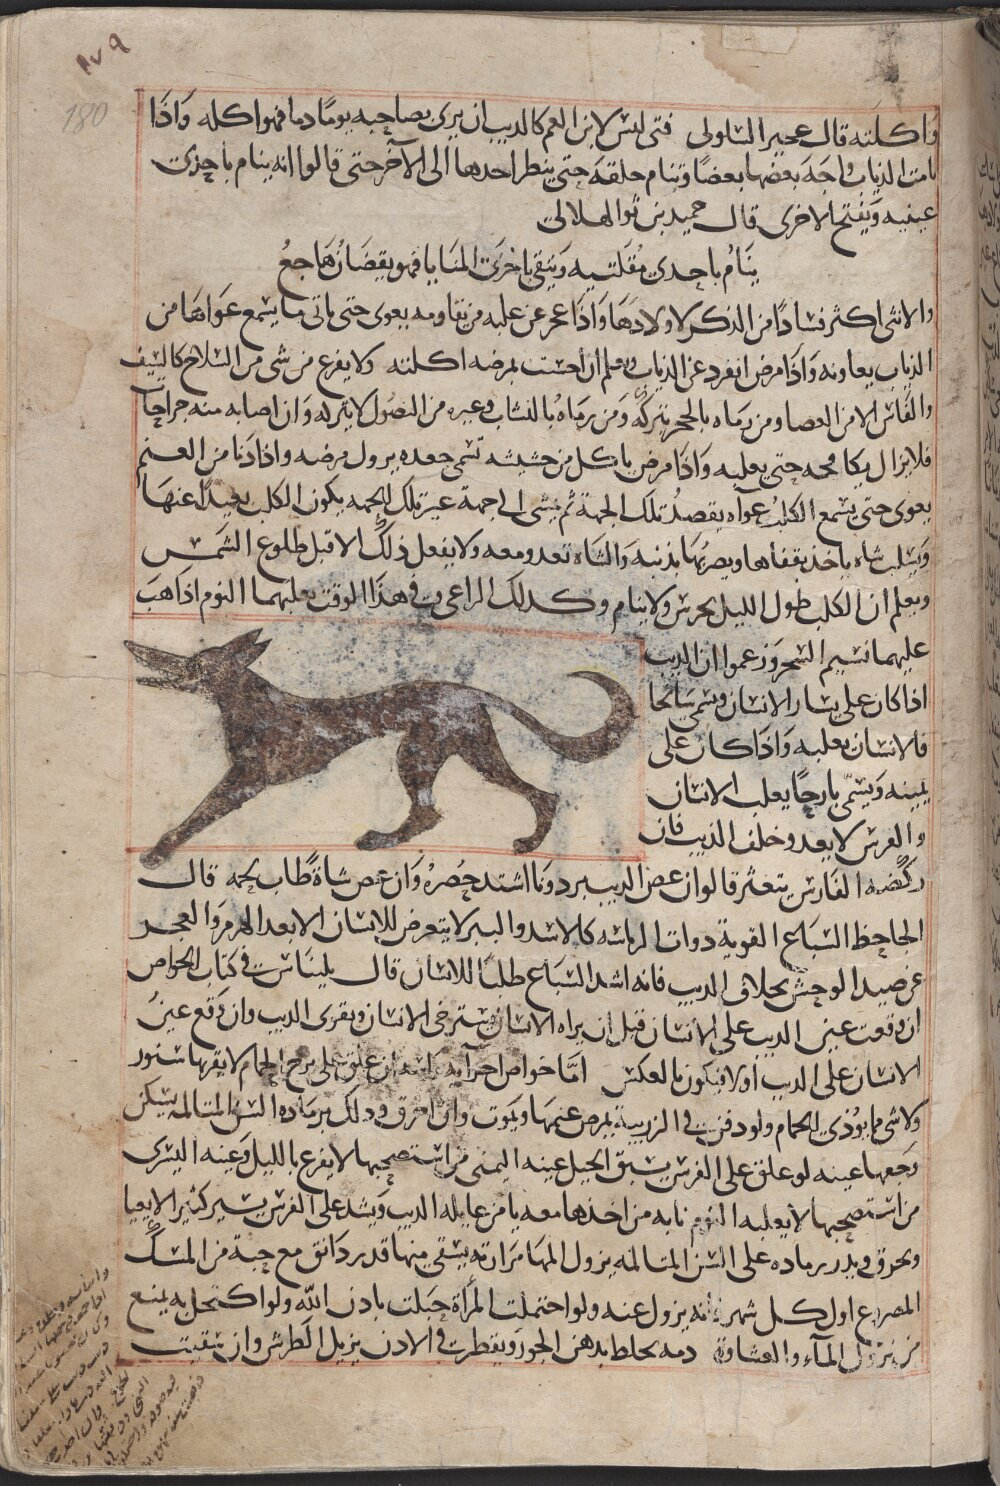 ١٧٩
180
واكلته قال عجير السلولى فتى ليس لابن العم كالذيب ان يرى بصاحبه يوما دما فهو اكله واذا
نامت الذياب واجه بعضها بعضا وتنام حلقة حتى ينظر احدها الى الآخر حتى قالوا انه ينام باحدى
عينيه ويفتح الاخرى قال حميد بن ثور الهلالى
ينام باحدى مقلتيه ويتقى باخرى المنايا فهو يقضان هاجع
والانثى اكثر فسادا من الذكر لاولادها واذا عجز عن غلبه من يقاومه يعوى حتى ياتى ما يسمع عواها من
الذياب يعاونه واذا مرض انفرد عن الذياب ويعلم ان احست بمرضه اكلته ولا يفزع من شى من السلاح كالسيف
والفاس الا من العصا ومن رماه بالحجر يتركه ومن رماه بالنشاب وغيره من النصول لا يتركه وان اصابه منه جراحا
فلا يزال يكافحه حتى يغلبه واذا مرض ياكل من حشيشه تسمى جعده يزول مرضه واذا دنا من الغنم
يعوى حتى يسمع الكلب عواه يقصد تلك الجمة ثم يمشى الى جمة غير تلك الجمه يكون الكلب بعيدا عنها
ويسلب شاه ياخذ بقفاها ويضربها بذنبه والشاه تعدو معه ولا يفعل ذلك الا قبل طلوع الشمس
ويعلم ان الكلب طول الليل يحرس ولا ينام وكذلك الراعى وفى هذا الوقت يغلبهما النوم اذا هب
عليهما نسيم السحر وزعموا ان الذيب
اذا كان على يسار الانسان ويسمى سانحا
فالانسان يغلبه واذا كان على
يمينه ويسمى بارحا يغلب الانسان
والفرس لا يعدو خلف الذيب فان
ركضه الفارس يتعثر قالوا ان عض الذيب برذونا اشتد حضره وان عض شاة طاب لحمه قال
الجاحظ السباع القوية ذوات الرياسه كالاسد والببر لا يتعرض للانسان الا بعد الهرم والعجز
عن صيد الوحش بخلاف الذيب فانه اشد السباع طلبا للانسان قال بليناس فى كتاب الخواص
ان وقعت عين الذيب على الانسان قبل ان يراه الانسان يسترخى الانسان ويقوى الذيب وان وقع عين
الانسان على الذيب اولا فيكون بالعكس اما خواص اجزآيه راسه ان علق على برج الحمام لا يقربها سنور
ولا شى مما يوذى الحمام ولو دفنت فى الزريبة يمرض غنمها ويموت وان احرق ودلك برماده السن المتالمه يسكن
وجعها عينه لو علق على الفرس يسبق الخيل عينه اليمنى من استصحبها لا يفزع بالليل وعينه اليسرى
من استصحبها لا يغلبه النوم نابه من اخذها معه يامن غايله الذيب ويشد على الفرس يسير كثيرا لا يعيا
ويحرق ويذر رماده على السن المتالمه يزول المها مرارته يسقى منها قدر دانق مع حبة من المسك
المصروع اول كل شهر فانه يزول عنه ولو احتملت المرأة حبلت باذن الله ولو اكتحل به يمنع
من نزول المآء والغشاوة دمه يخلط بدهن الجوز ويقطر فى الاذن يزيل الطرش وان سقيت